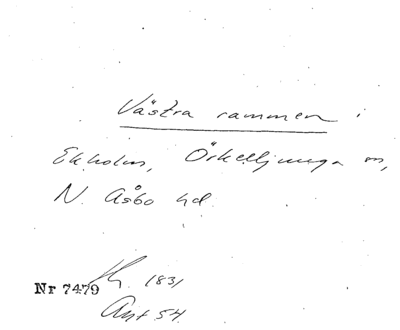 Västra rammen i
Ekholm, Örkelljunga sn,
N. Åsbo hd.
1831
Nr 7479
Ant 54.